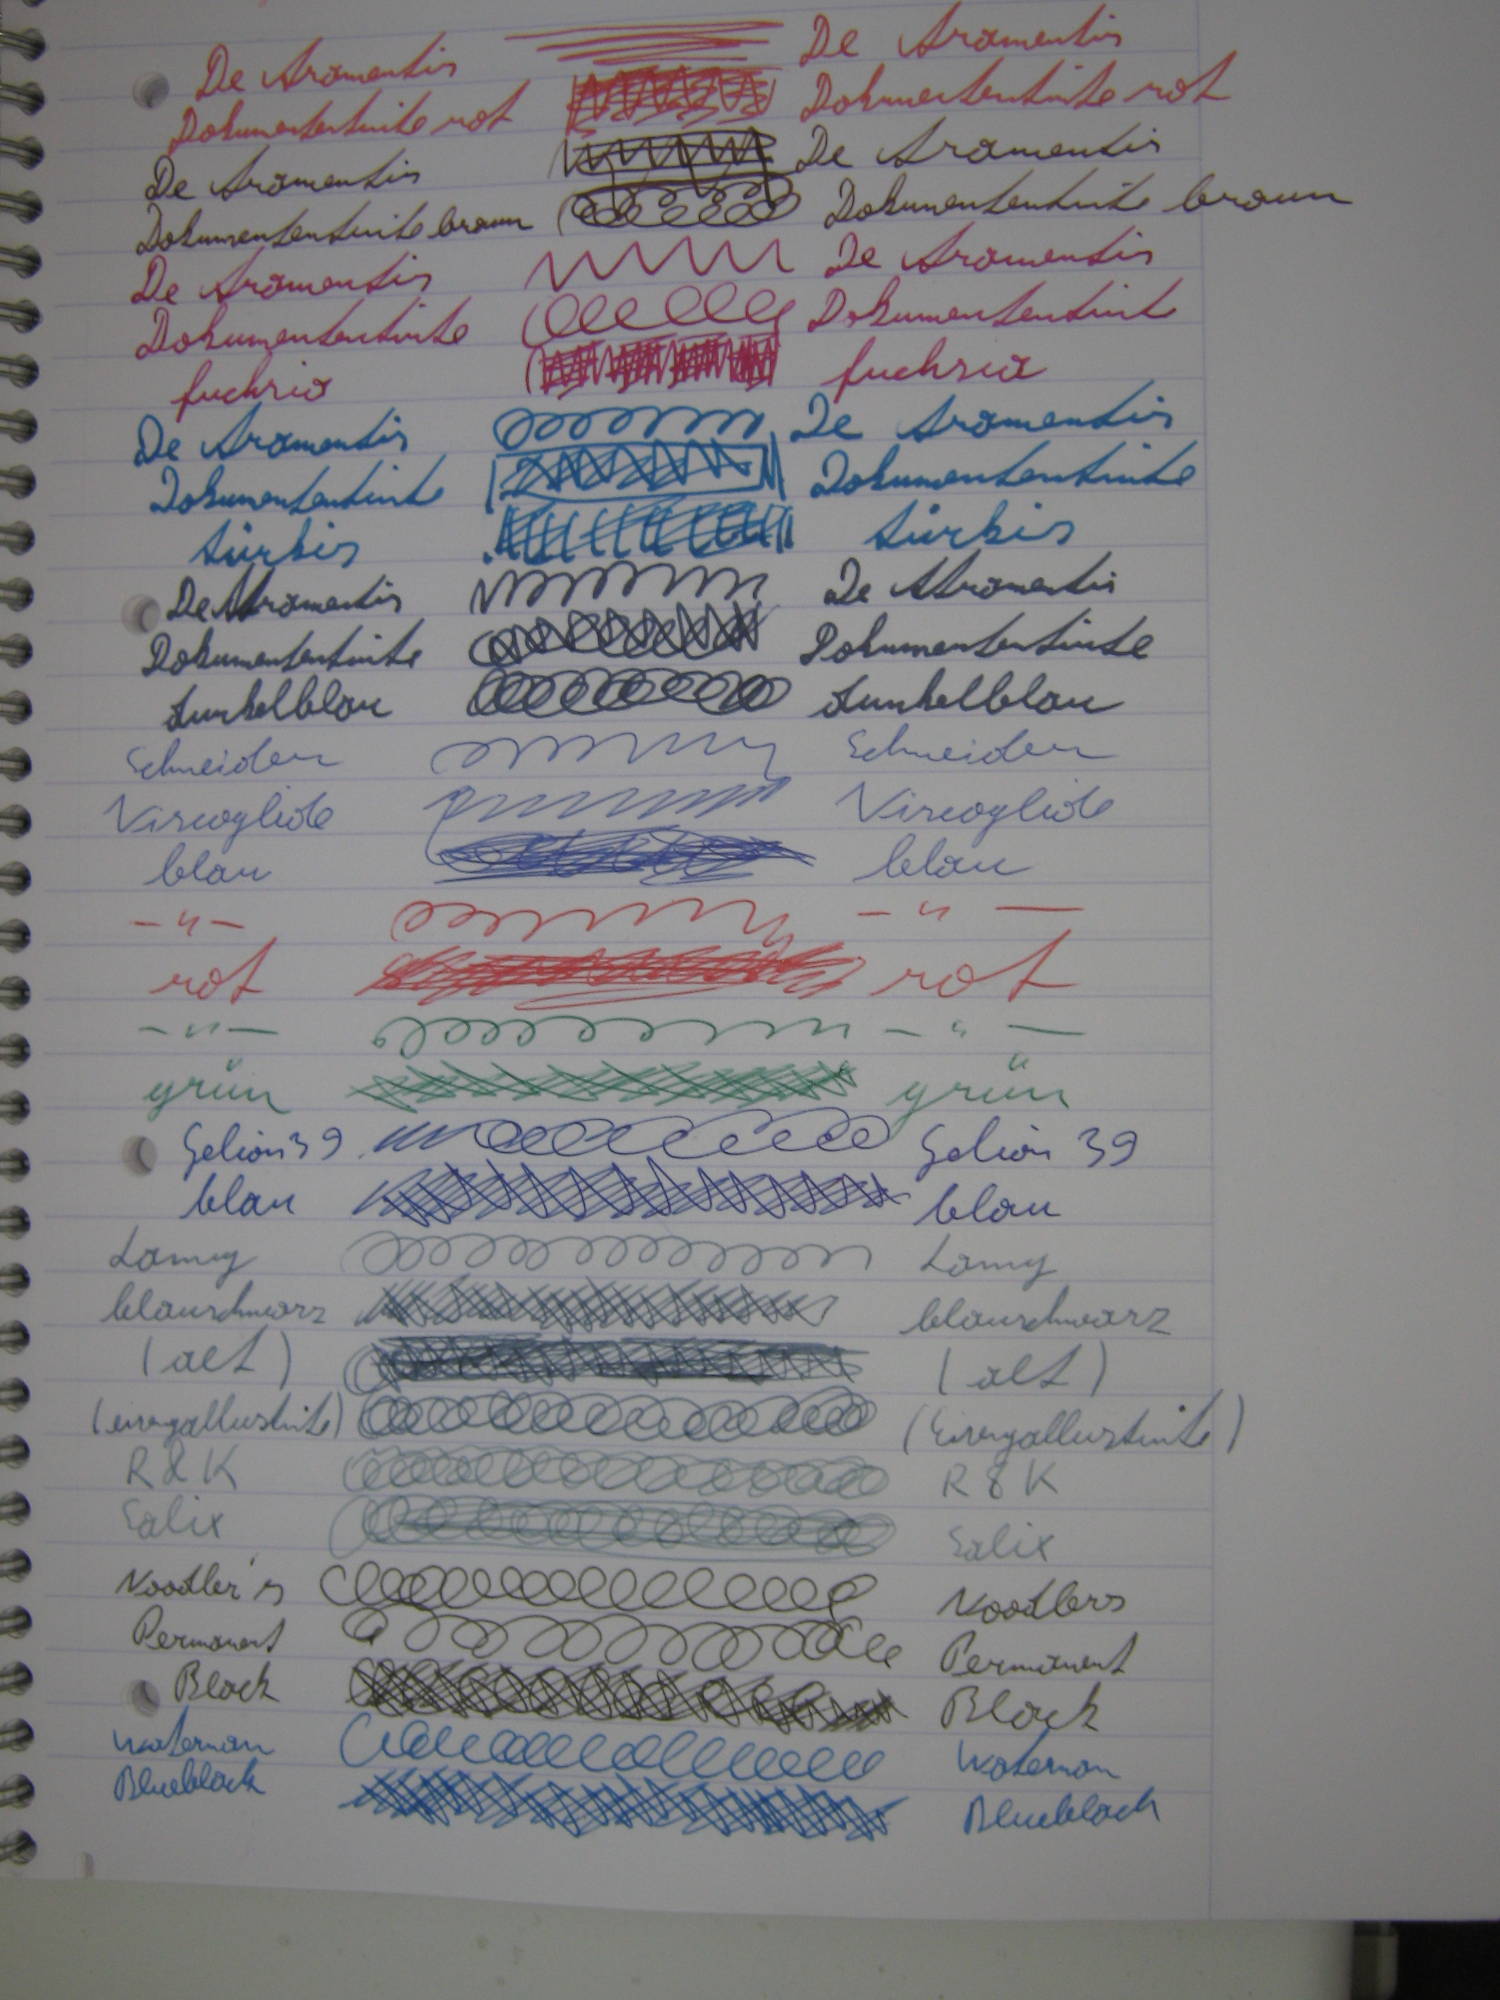 De Atramentis De Atramentis
Dokumententinte rot Dokumententinte rot
De Atramentis De Atramentis
Dokumententinte braun Dokumententinte braun
De Atramentis De Atramentis
Dokumententinte Dokumententinte
fuchsia fuchsia
De Atramentis De Atramentis
Dokumententinte Dokumententinte
türkis türkis
De Atramentis De Atramentis
Dokumententinte Dokumententinte
dunkelblau dunkelblau
Schneider Schneider
Viscoglide Viscoglide
blau blau
—"— —"—
rot rot
—"— —"—
grün grün
Gelion 39 Gelion 39
blau blau
Lamy Lamy
blauschwarz blauschwarz
(alt) (alt)
(eisengallustinte) (Eisengallustinte)
R & K R & K
Salix Salix
Noodler's Noodlers
Permanent Permanent
Black Black
Waterman Waterman
Blueblack Blueblack